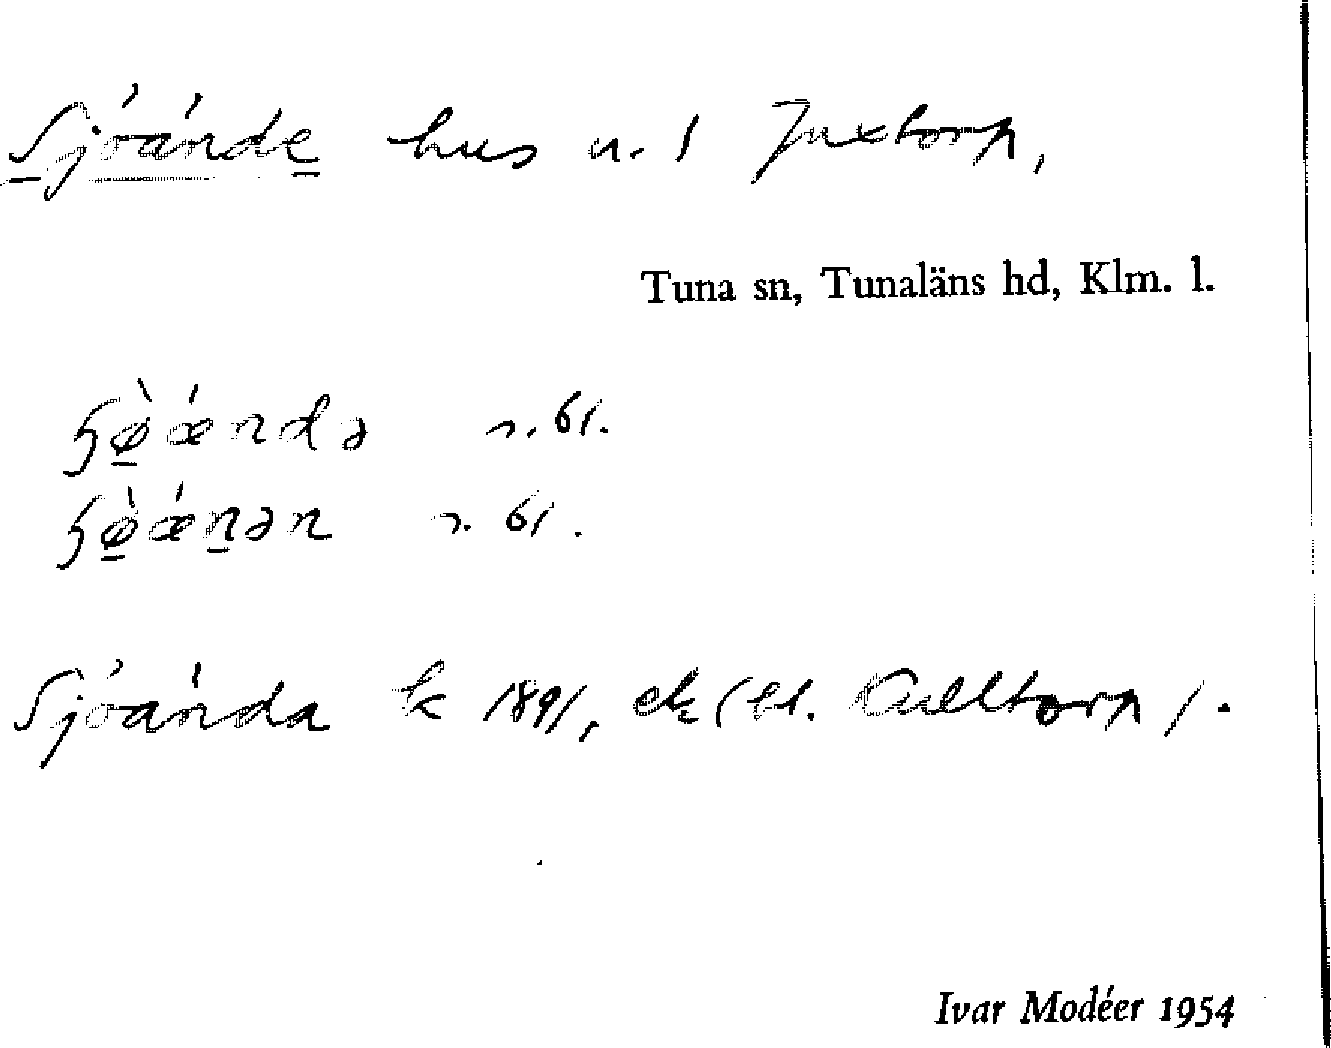 Sjöände hus u. 1 Juxtorp,
Tuna sn, Tunaläns hd, Klm. l.
ɧø̠̀ǽndə n. 61.
ɧø̠̀ǽn̠ən n. 61.
Sjöända k 1891, ek (bl. Kulltorp).
Ivar Modéer 1954